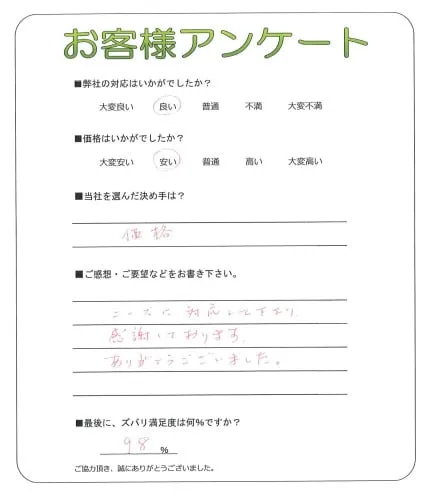 お客様アンケート
■弊社の対応はいかがでしたか？
大変良い 良い 普通 不満 大変不満
■価格はいかがでしたか？
大変安い 安い 普通 高い 大変高い
■当社を選んだ決め手は？
価格
■ご感想・ご要望などをお書き下さい。
ニーズに対応して下さり
感謝しております。
ありがとうございました。
■最後に、ズバリ満足度は何%ですか？
98 %
ご協力頂き、誠にありがとうございました。